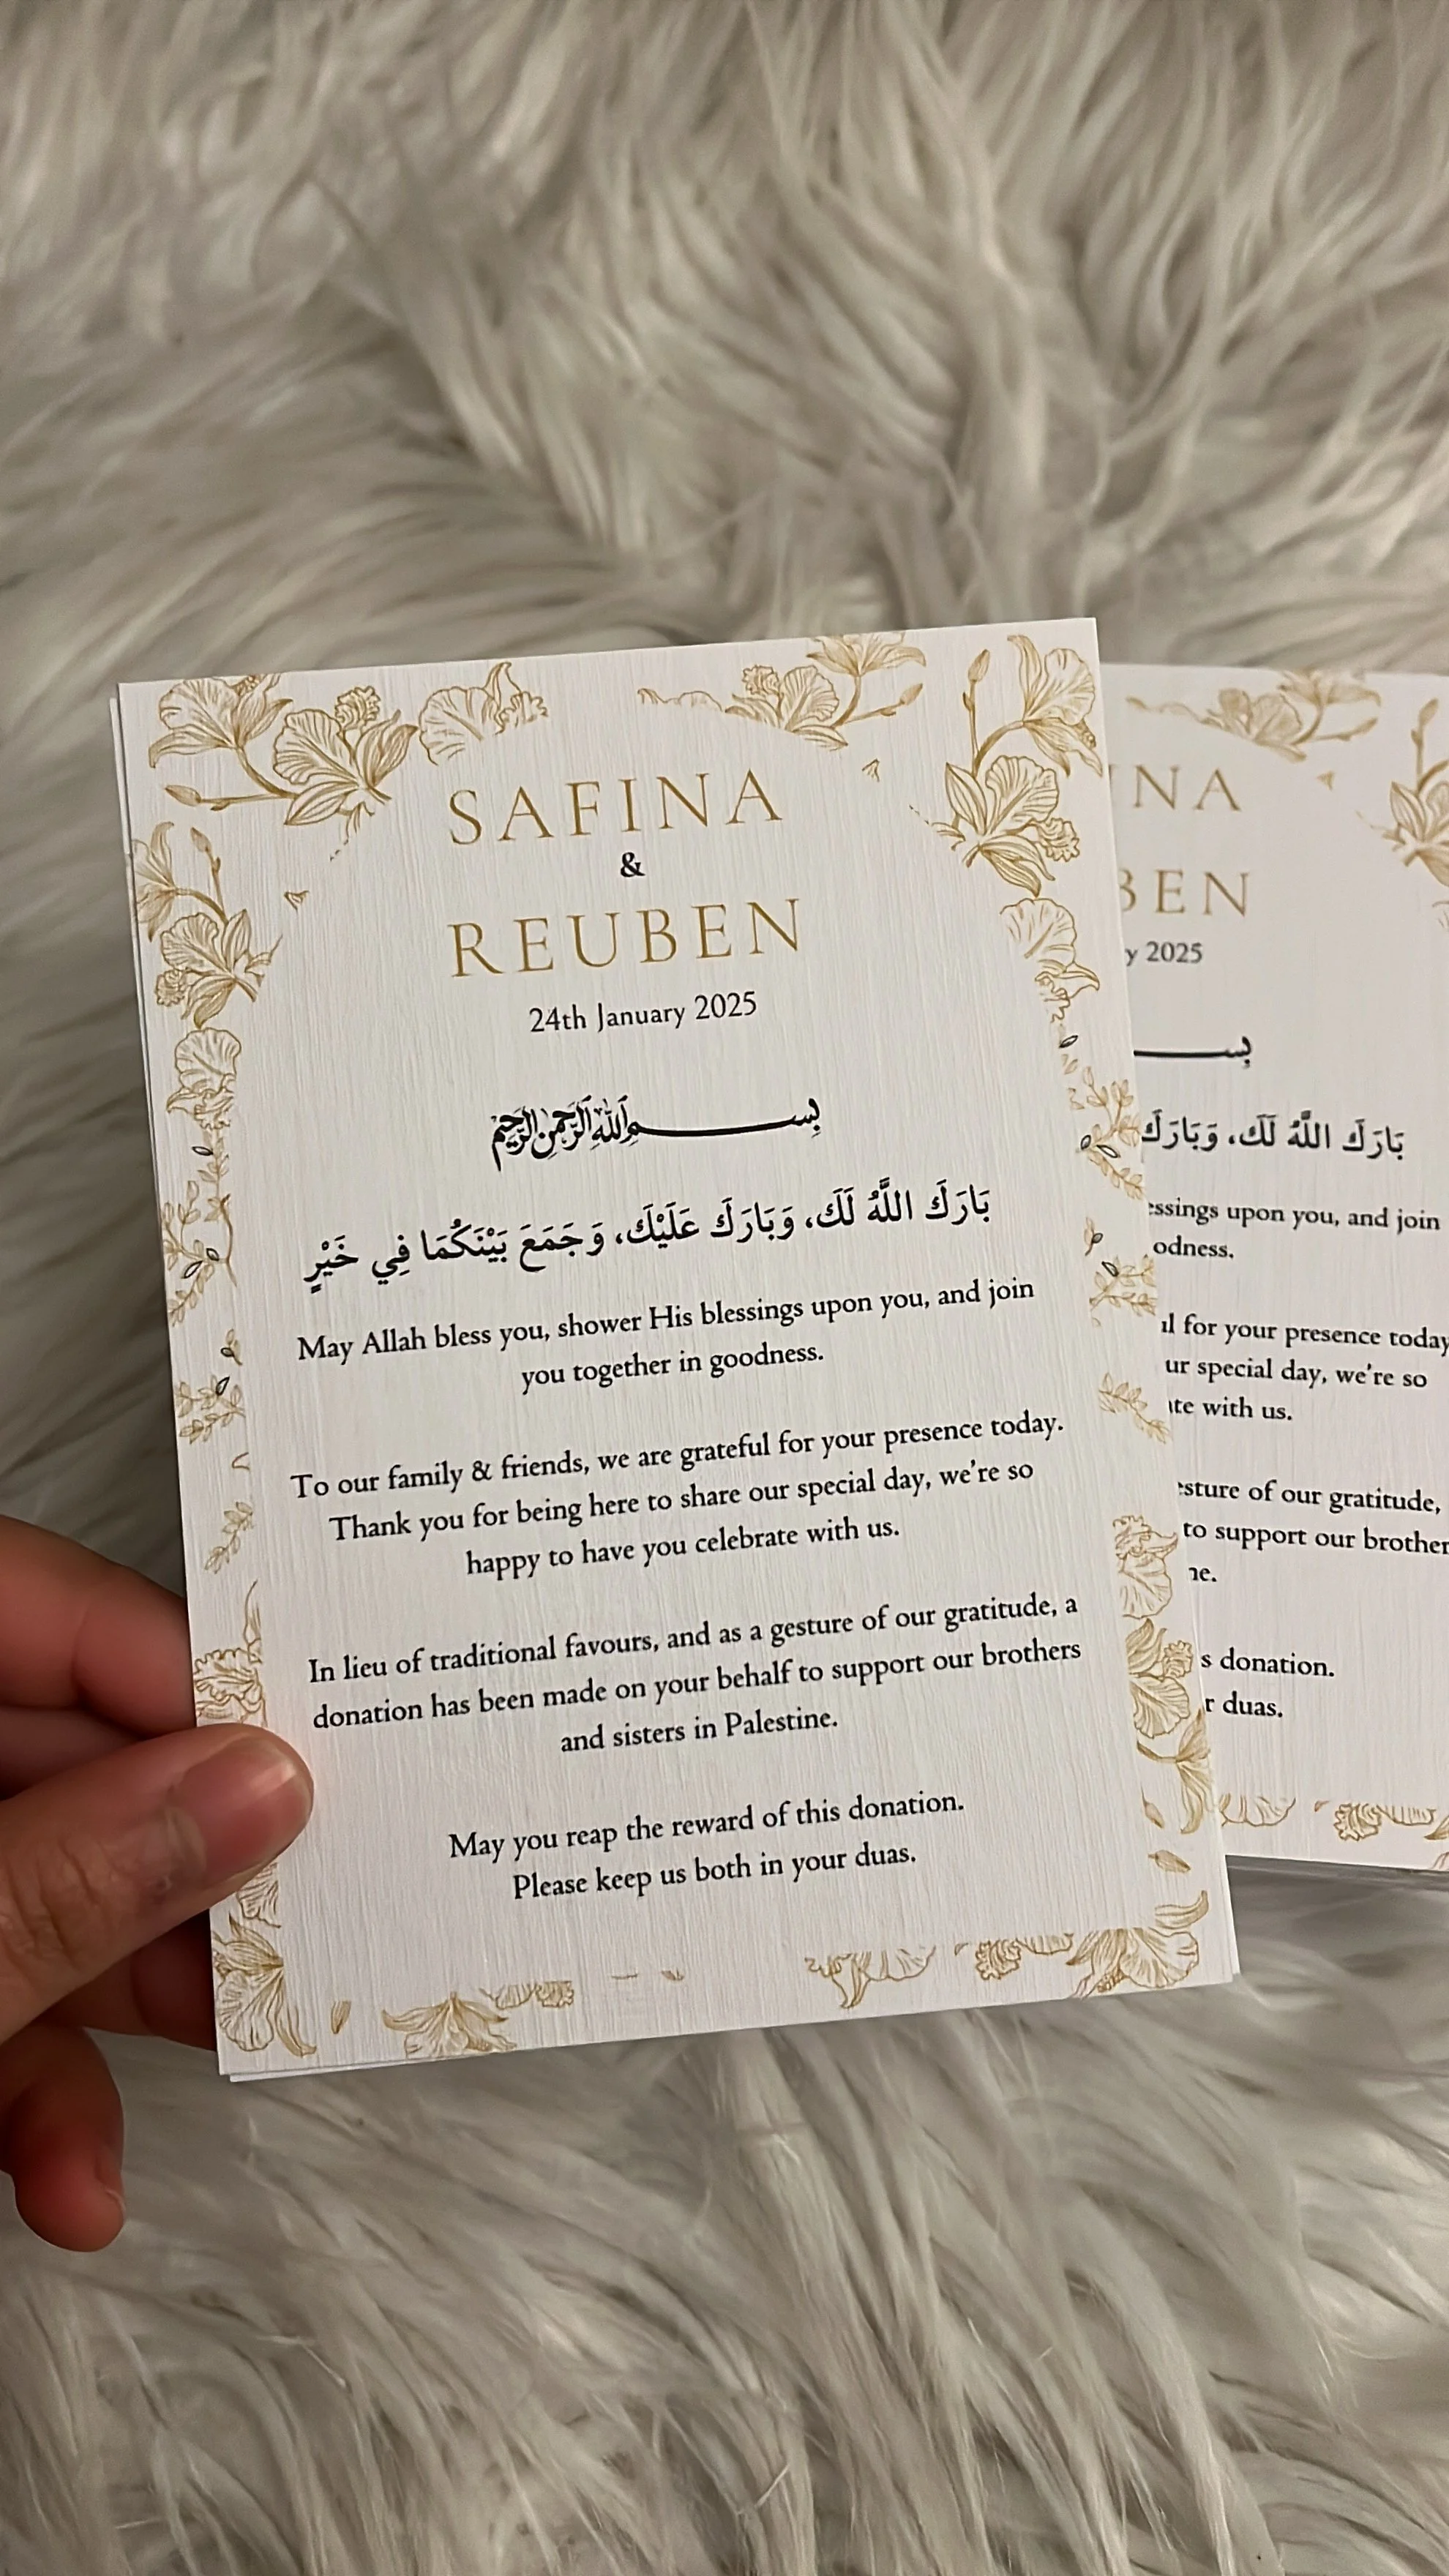 SAFINA
&
REUBEN
24th January 2025
بِسْمِ اللَّهِ الرَّحْمَٰنِ الرَّحِيمِ
بَارَكَ اللَّهُ لَكَ، وَبَارَكَ عَلَيْكَ، وَجَمَعَ بَيْنَكُمَا فِي خَيْرٍ
May Allah bless you, shower His blessings upon you, and join
you together in goodness.
To our family & friends, we are grateful for your presence today.
Thank you for being here to share our special day, we're so
happy to have you celebrate with us.
In lieu of traditional favours, and as a gesture of our gratitude, a
donation has been made on your behalf to support our brothers
and sisters in Palestine.
May you reap the reward of this donation.
Please keep us both in your duas.
INA
BEN
y 2025
بِسـ
بَارَكَ اللَّهُ لَكَ، وَبَارَكَ
essings upon you, and join
odness.
ul for your presence today
ur special day, we're so
ate with us.
esture of our gratitude,
to support our brother
ne.
s donation.
r duas.